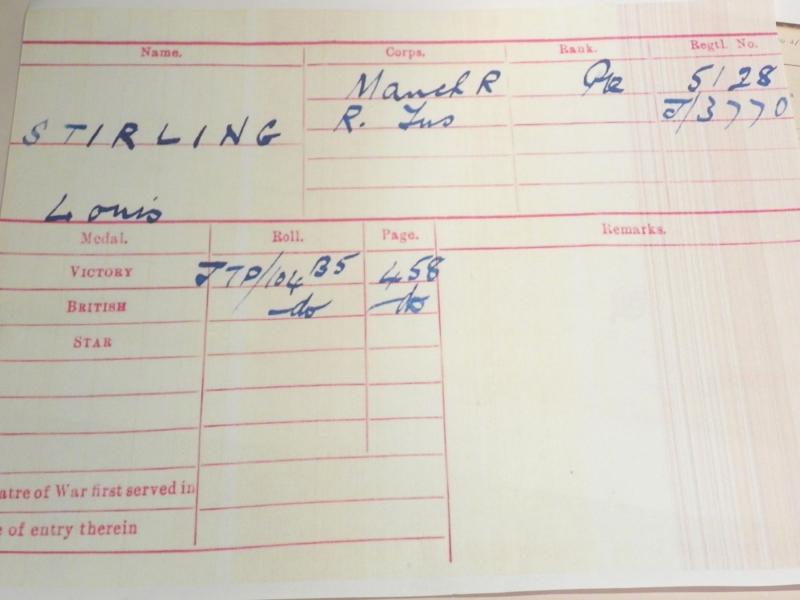 Name. Corps. Rank. Regtl. No.
Manch R Pte 5128
R. Fus J/3770
STIRLING
Louis
Medal. Roll. Page. Remarks.
VICTORY JTP/104 B5 458
BRITISH do do
STAR
atre of War first served in
e of entry therein